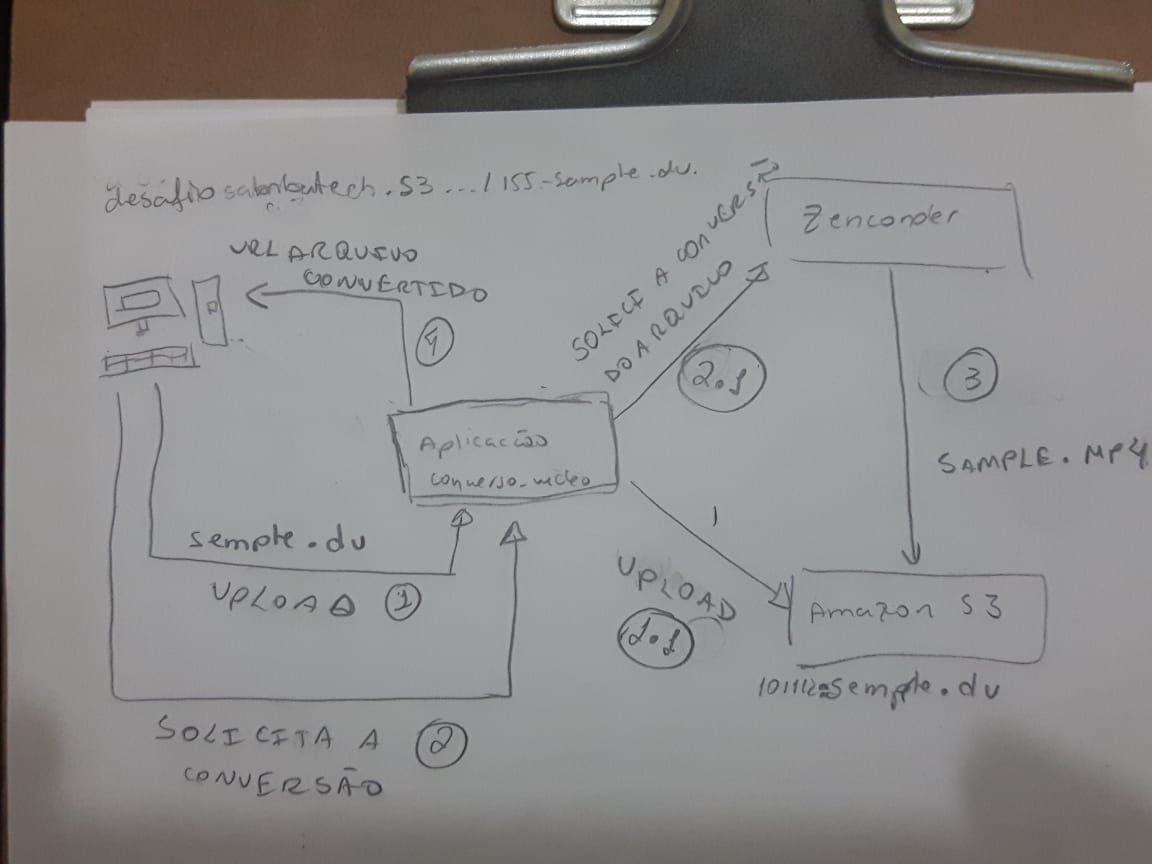 desafiosambatech.S3.../155-sample.dv.
Zenconder
URL ARQUIVO
CONVERTIDO
4
SOLICI A CONVERSÃO
DO ARQUIVO
2.1
3
SAMPLE.MP4
Aplicação
converso_video
semple.dv
UPLOAD 1
UPLOAD
1.1
Amazon S3
semple.dv
SOLICITA A 2
CONVERSÃO